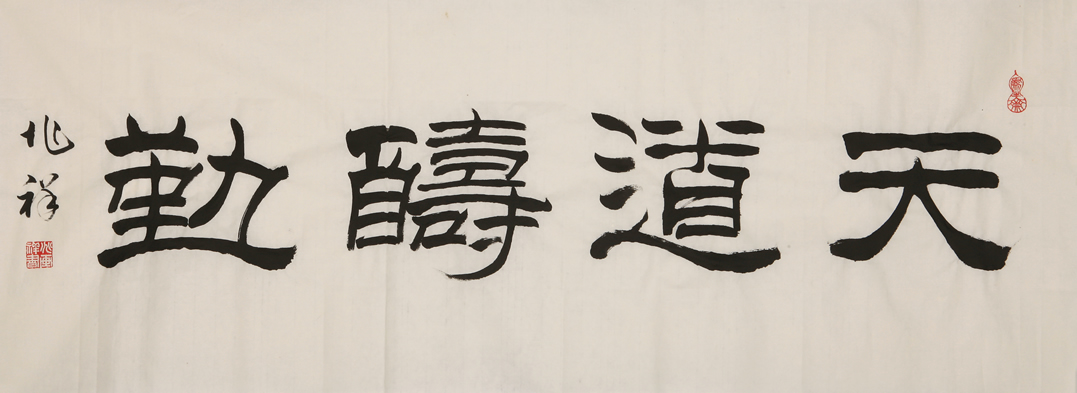 天道醻勤
兆祥